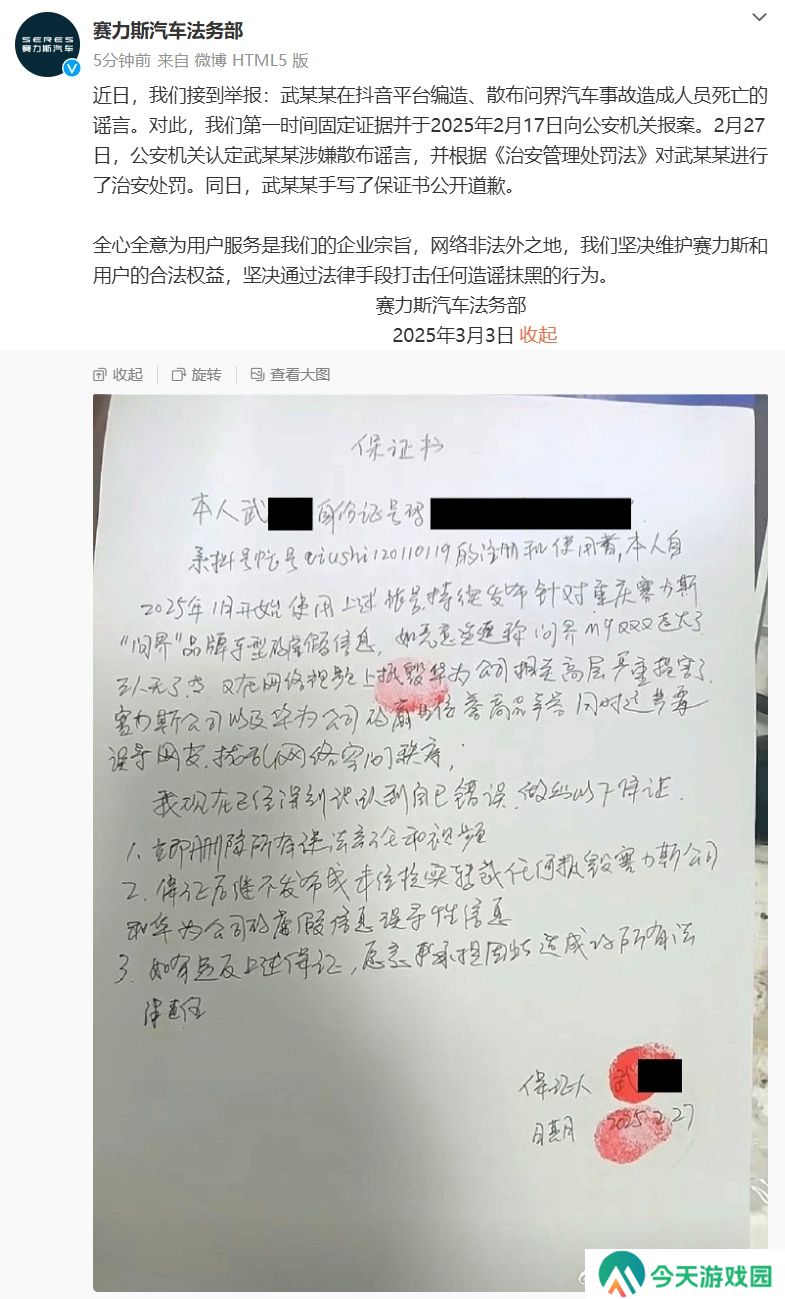 SERES
赛力斯汽车
赛力斯汽车法务部
5分钟前 来自 微博 HTML5 版
近日，我们接到举报：武某某在抖音平台编造、散布问界汽车事故造成人员死亡的
谣言。对此，我们第一时间固定证据并于2025年2月17日向公安机关报案。2月27
日，公安机关认定武某某涉嫌散布谣言，并根据《治安管理处罚法》对武某某进行
了治安处罚。同日，武某某手写了保证书公开道歉。
全心全意为用户服务是我们的企业宗旨，网络非法外之地，我们坚决维护赛力斯和
用户的合法权益，坚决通过法律手段打击任何造谣抹黑的行为。
赛力斯汽车法务部
2025年3月3日 收起
收起 旋转 查看大图
保证书
本人武 身份证号码
系抖号帐号qiushi120110119的注册和使用者，本人自
2025年1月开始使用上述帐号持续发布针对重庆赛力斯
"问界"品牌车型的虚假信息，如恶意造谣称问界M9XXX
又在网络视频上抵毁华为公司相关高层严重损害了
赛力斯公司以及华为公司的商业信誉商品声誉同时这
误导网友，扰乱网络空间秩序；
我现在已经深刻认识到自己错误，做出以下保证.
1. 立即删除所有违法言论和视频
2. 保证后继不发布或未经核实转载任何抵毁赛力斯公司
和华为公司的虚假信息误导性信息
3. 如有违反上述保证，愿意承担因此造成的所有法
律责任
保证人 武
日期 2025 2 27
今天游戏园